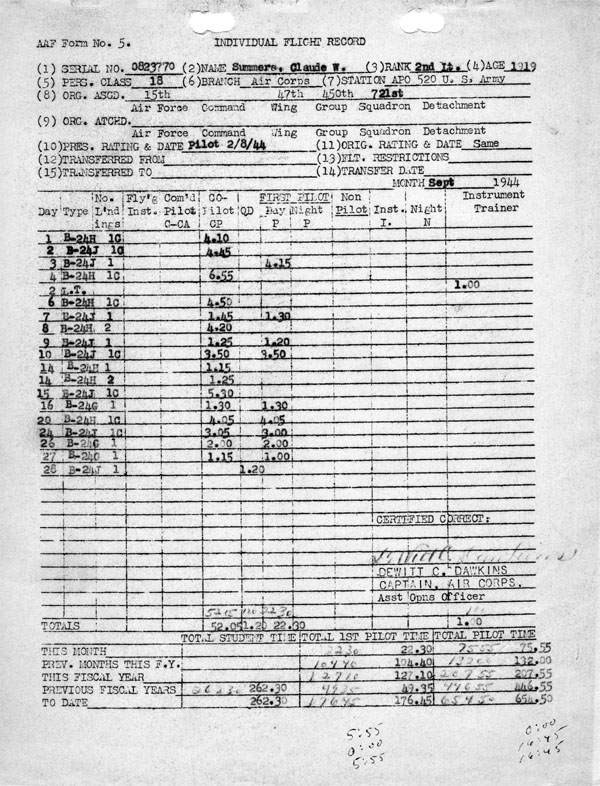 AAF Form No. 5. INDIVIDUAL FLIGHT RECORD
(1) SERIAL NO. 0823770 (2) NAME Summers, Claude W. (3) RANK 2nd Lt. (4) AGE 1919
(5) PERS. CLASS 18 (6) BRANCH Air Corps (7) STATION APO 520 U. S. Army
(8) ORG. ASGD. 15th 47th 450th 721st
Air Force Command Wing Group Squadron Detachment
(9) ORG. ATCHD.
Air Force Command Wing Group Squadron Detachment
(10) PRES. RATING & DATE Pilot 2/8/44 (11) ORIG. RATING & DATE Same
(12) TRANSFERRED FROM (13) FLT. RESTRICTIONS
(15) TRANSFERRED TO (14) TRANSFER DATE
MONTH Sept 1944
No. Fly'g Com'd CO- FIRST PILOT Non Instrument
Day Type L'nd Inst. Pilot Pilot QD Day Night Pilot Inst. Night Trainer
ings C-CA CP P P I. N
1 B-24H 1C 4.10
2 B-24J 1C 4.45
3 B-24J 1 4.15
4 B-24H 1C 6.55
2 L.T. 1.00
6 B-24H 1C 4.50
7 B-24J 1 1.45 1.30
8 B-24H 2 4.20
9 B-24J 1 1.25 1.20
10 B-24J 1C 3.50 3.50
14 B-24H 1 1.15
14 B-24H 2 1.25
15 B-24J 1C 5.30
16 B-24G 1 1.30 1.30
20 B-24H 1C 4.05 4.05
24 B-24J 1C 3.05 3.00
26 B-24G 1 2.00 2.00
27 B-24G 1 1.15 1.00
28 B-24J 1 1.20
CERTIFIED CORRECT:
DEWITT C. DAWKINS
CAPTAIN, AIR CORPS.
Asst Opns Officer
TOTALS 52.05 1.20 22.30 1.00
TOTAL STUDENT TIME TOTAL 1ST PILOT TIME TOTAL PILOT TIME
THIS MONTH 2230 22.30 7555 75.55
PREV. MONTHS THIS F.Y. 10440 104.40 13200 132.00
THIS FISCAL YEAR 12710 127.10 20755 207.55
PREVIOUS FISCAL YEARS 26230 262.30 4935 49.35 44655 446.55
TO DATE 262.30 17645 176.45 65450 654.50
5:55 0:00
0:00 16:45
5:55 16:45